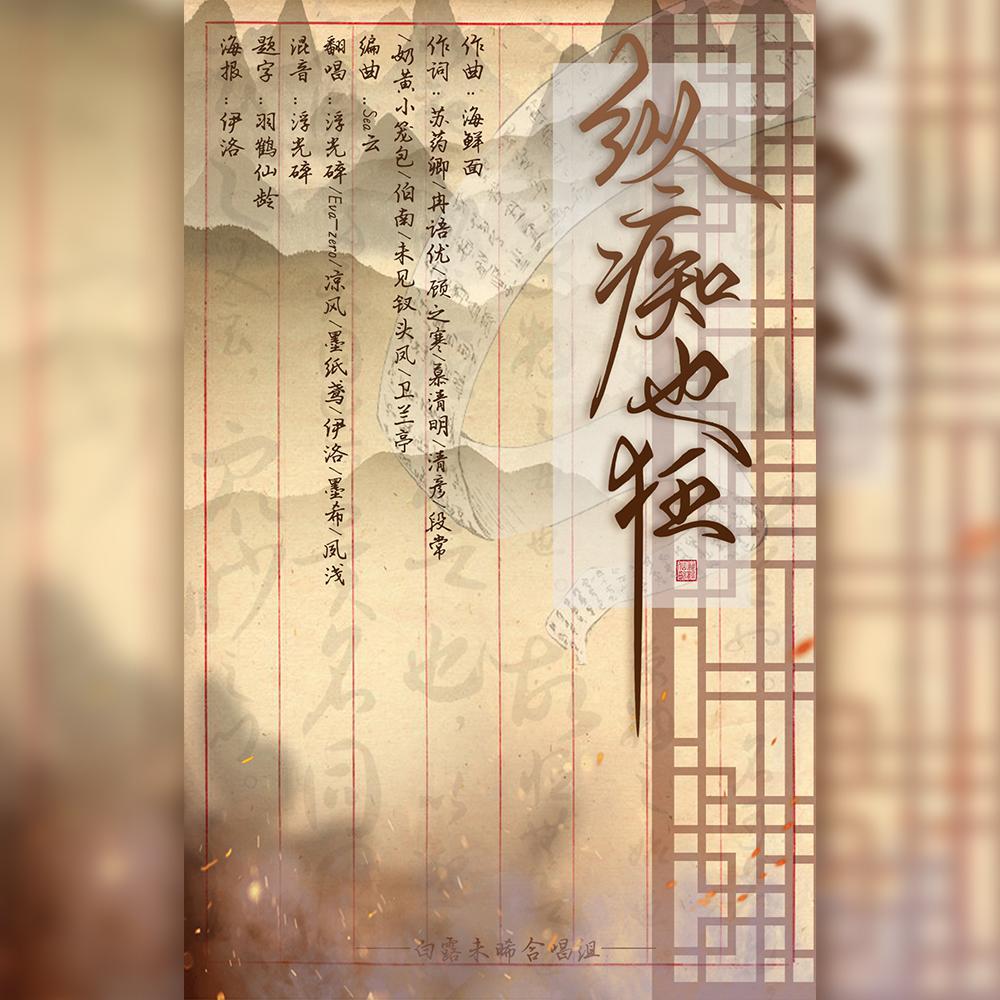 纵痴也狂
作曲：海鲜面
作词：苏药卿/冉语优/顾之寒/慕清明/清彦/段常
/奶黄小笼包/伯南/未见钗头凤/卫兰亭
编曲：Sea云
翻唱：浮光碎/Eva-zero/凉风/墨纸鸢/伊洛/墨希/凤浅
混音：浮光碎
题字：羽鹤仙龄
海报：伊洛
白露未晞合唱组